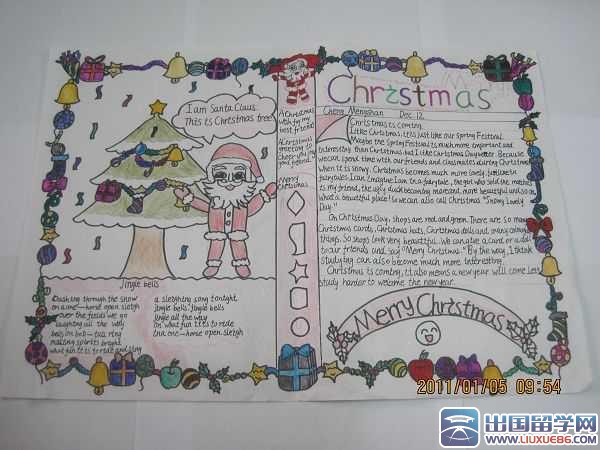 I am Santa Claus.
This is Christmas tree!
Jingle bells
Dashing through the snow
on a one—horse open sleigh
over the fields we go
laughing all the way
bells on bob—tail ring
making spirits bright
what fun it is to ride and sing
a sleighing song tonight
jingle bells jingle bells
jingle all the way
oh what fun it is to ride
in a one—horse open sleigh
A Christmas
wish for my
best friend!
A Christmas
greeting to
cheer you my
good friend!
Merry
Christmas
Christmas
Cheng Mengshan Dec 12
Christmas is coming.
I like Christmas, it is just like our Spring Festival.
Maybe the Spring Festival is much more important and
interesting than Christmas but I like Christmas Day better. Because
we can spend time with our friends and classmates during Christmas
When it is snowy, Christmas becomes much more lovely, just like in
fairy tales. I am in a fairy tale, the girl who sold the matches
is my friend, the ugly duck becoming more and more beautiful and so on
what a beautiful place! So we can also call Christmas "Snowy Lovely
Day."
On Christmas Day, shops are red and green. There are so many
Christmas cards, Christmas hats, Christmas dolls and many
things. So shops look very beautiful. We can give a card or a doll
to our friends and say "Merry Christmas." By the way, I think
studying can also become much more interesting.
Christmas is coming, it also means a new year will come
study harder to welcome the new year.
Merry Christmas
2011/01/05 09:54
出国留学网
www.liuxue86.com